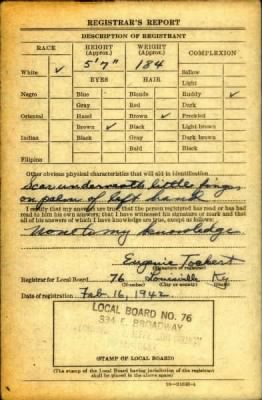 REGISTRAR'S REPORT
DESCRIPTION OF REGISTRANT
RACE HEIGHT (Approx.) WEIGHT (Approx.) COMPLEXION
5' 7" 184 Sallow
White ✓ EYES HAIR Light
Negro Blue Blonde Ruddy ✓
Gray Red Dark
Oriental Hazel Brown ✓ Freckled
Brown ✓ Black Light brown
Indian Black Gray Dark brown
Bald Black
Filipino
Other obvious physical characteristics that will aid in identification
Scar underneath little finger
on palm of left hand
I certify that my answers are true; that the person registered has read or has had
read to him his own answers; that I have witnessed his signature or mark and that
all of his answers of which I have knowledge are true, except as follows:
None to my knowledge.
Eugenie
(Signature of registrar)
Registrar for Local Board 76 Louisville Ky.
(Number) (City or county) (State)
Date of registration Feb. 16, 1942
LOCAL BOARD NO. 76
334 E. BROADWAY
(STAMP OF LOCAL BOARD)
(The stamp of the Local Board having jurisdiction of the registrant
shall be placed in the above space)